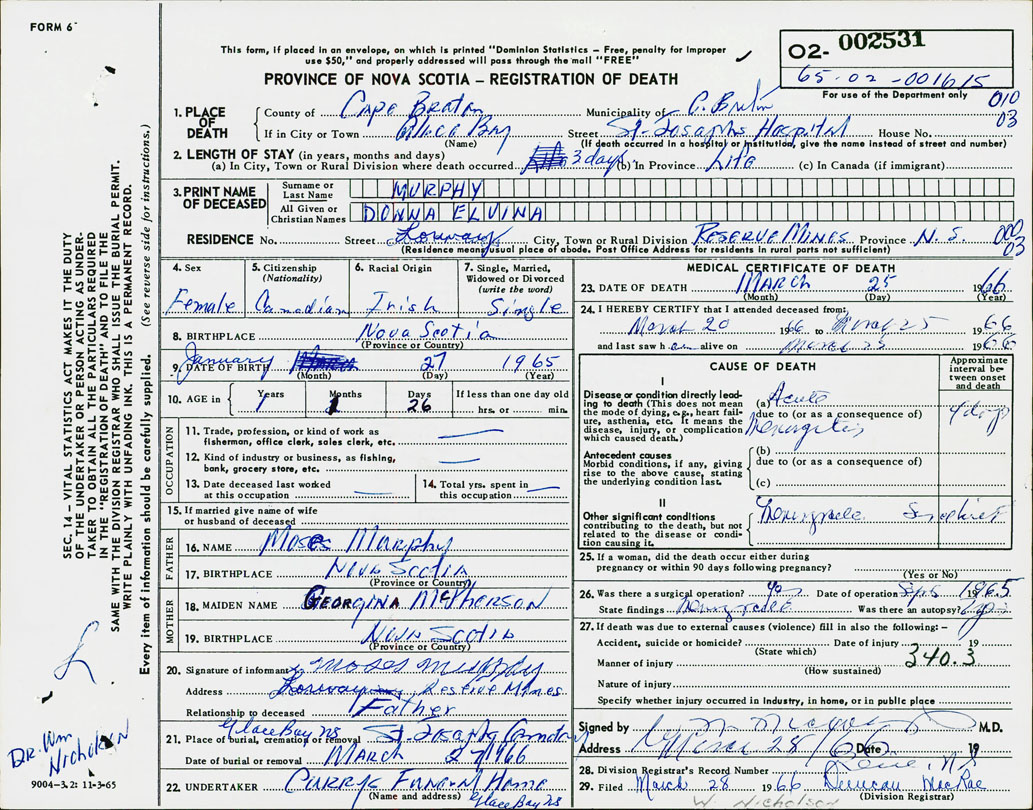 FORM 6
This form, if placed in an envelope, on which is printed "Dominion Statistics – Free, penalty for improper
use $50," and properly addressed will pass through the mail "FREE"
PROVINCE OF NOVA SCOTIA – REGISTRATION OF DEATH
O2- 002531
65-02-001615
For use of the Department only
010
03
1. PLACE OF DEATH
County of Cape Breton Municipality of C. Breton
If in City or Town Glace Bay Street St. Josephs Hospital House No.
(Name) (If death occurred in a hospital or institution, give the name instead of street and number)
2. LENGTH OF STAY (in years, months and days)
(a) In City, Town or Rural Division where death occurred 3 days (b) In Province Life (c) In Canada (if immigrant)
3. PRINT NAME OF DECEASED
Surname or Last Name MURPHY
All Given or Christian Names DONNA ELVINA
RESIDENCE No. Street Lorway City, Town or Rural Division RESERVE MINES Province N. S.
000
03
(Residence means usual place of abode. Post Office Address for residents in rural parts not sufficient)
4. Sex
Female
5. Citizenship (Nationality)
Canadian
6. Racial Origin
Irish
7. Single, Married, Widowed or Divorced (write the word)
Single
8. BIRTHPLACE Nova Scotia
(Province or Country)
9. DATE OF BIRTH January 27 1965
(Month) (Day) (Year)
10. AGE in Years 1 Months 1 Days 26 If less than one day old hrs. or min.
OCCUPATION
11. Trade, profession, or kind of work as fisherman, office clerk, sales clerk, etc.
12. Kind of industry or business, as fishing, bank, grocery store, etc.
13. Date deceased last worked at this occupation
14. Total yrs. spent in this occupation
15. If married give name of wife or husband of deceased
FATHER
16. NAME Moses Murphy
17. BIRTHPLACE NOVA SCOTIA
(Province or Country)
MOTHER
18. MAIDEN NAME GEORGINA McPHERSON
19. BIRTHPLACE NOVA SCOTIA
(Province or Country)
20. Signature of informant Moses Murphy
Address Lorway Reserve Mines
Relationship to deceased Father
Glace Bay NS
21. Place of burial, cremation or removal St.
Date of burial or removal MARCH 27 1966
22. UNDERTAKER CURRYS Funeral Home
(Name and address) Glace Bay NS
MEDICAL CERTIFICATE OF DEATH
23. DATE OF DEATH MARCH 25 1966
(Month) (Day) (Year)
24. I HEREBY CERTIFY that I attended deceased from:
March 20 1966 to March 25 1966
and last saw her alive on March 25 1966
CAUSE OF DEATH
Approximate interval between onset and death
I
Disease or condition directly leading to death (This does not mean the mode of dying, e.g., heart failure, asthenia, etc. It means the disease, injury, or complication which caused death.)
(a) Acute
due to (or as a consequence of)
Meningitis
4 days
Antecedent causes
Morbid conditions, if any, giving rise to the above cause, stating the underlying condition last.
(b)
due to (or as a consequence of)
(c)
II
Other significant conditions contributing to the death, but not related to the disease or condition causing it.
25. If a woman, did the death occur either during pregnancy or within 90 days following pregnancy?
(Yes or No)
26. Was there a surgical operation? yes Date of operation Sept 1965
State findings Was there an autopsy?
27. If death was due to external causes (violence) fill in also the following:–
Accident, suicide or homicide? Date of injury 19
(State which)
340.3
Manner of injury
(How sustained)
Nature of injury
Specify whether injury occurred in Industry, in home, or in public place
Signed by M.D.
Address March 28/66 Date 19
28. Division Registrar's Record Number
29. Filed March 28 1966 Duncan MacRae
(Division Registrar)
W. Nicholson
SEC. 14 – VITAL STATISTICS ACT MAKES IT THE DUTY
OF THE UNDERTAKER OR PERSON ACTING AS UNDER-
TAKER TO OBTAIN ALL THE PARTICULARS REQUIRED
IN THE "REGISTRATION OF DEATH" AND TO FILE THE
SAME WITH THE DIVISION REGISTRAR WHO SHALL ISSUE THE BURIAL PERMIT.
WRITE PLAINLY WITH UNFADING INK. THIS IS A PERMANENT RECORD.
Every item of information should be carefully supplied. (See reverse side for instructions.)
DR. Wm
NICHOLSON
9004-3.2: 11-3-65